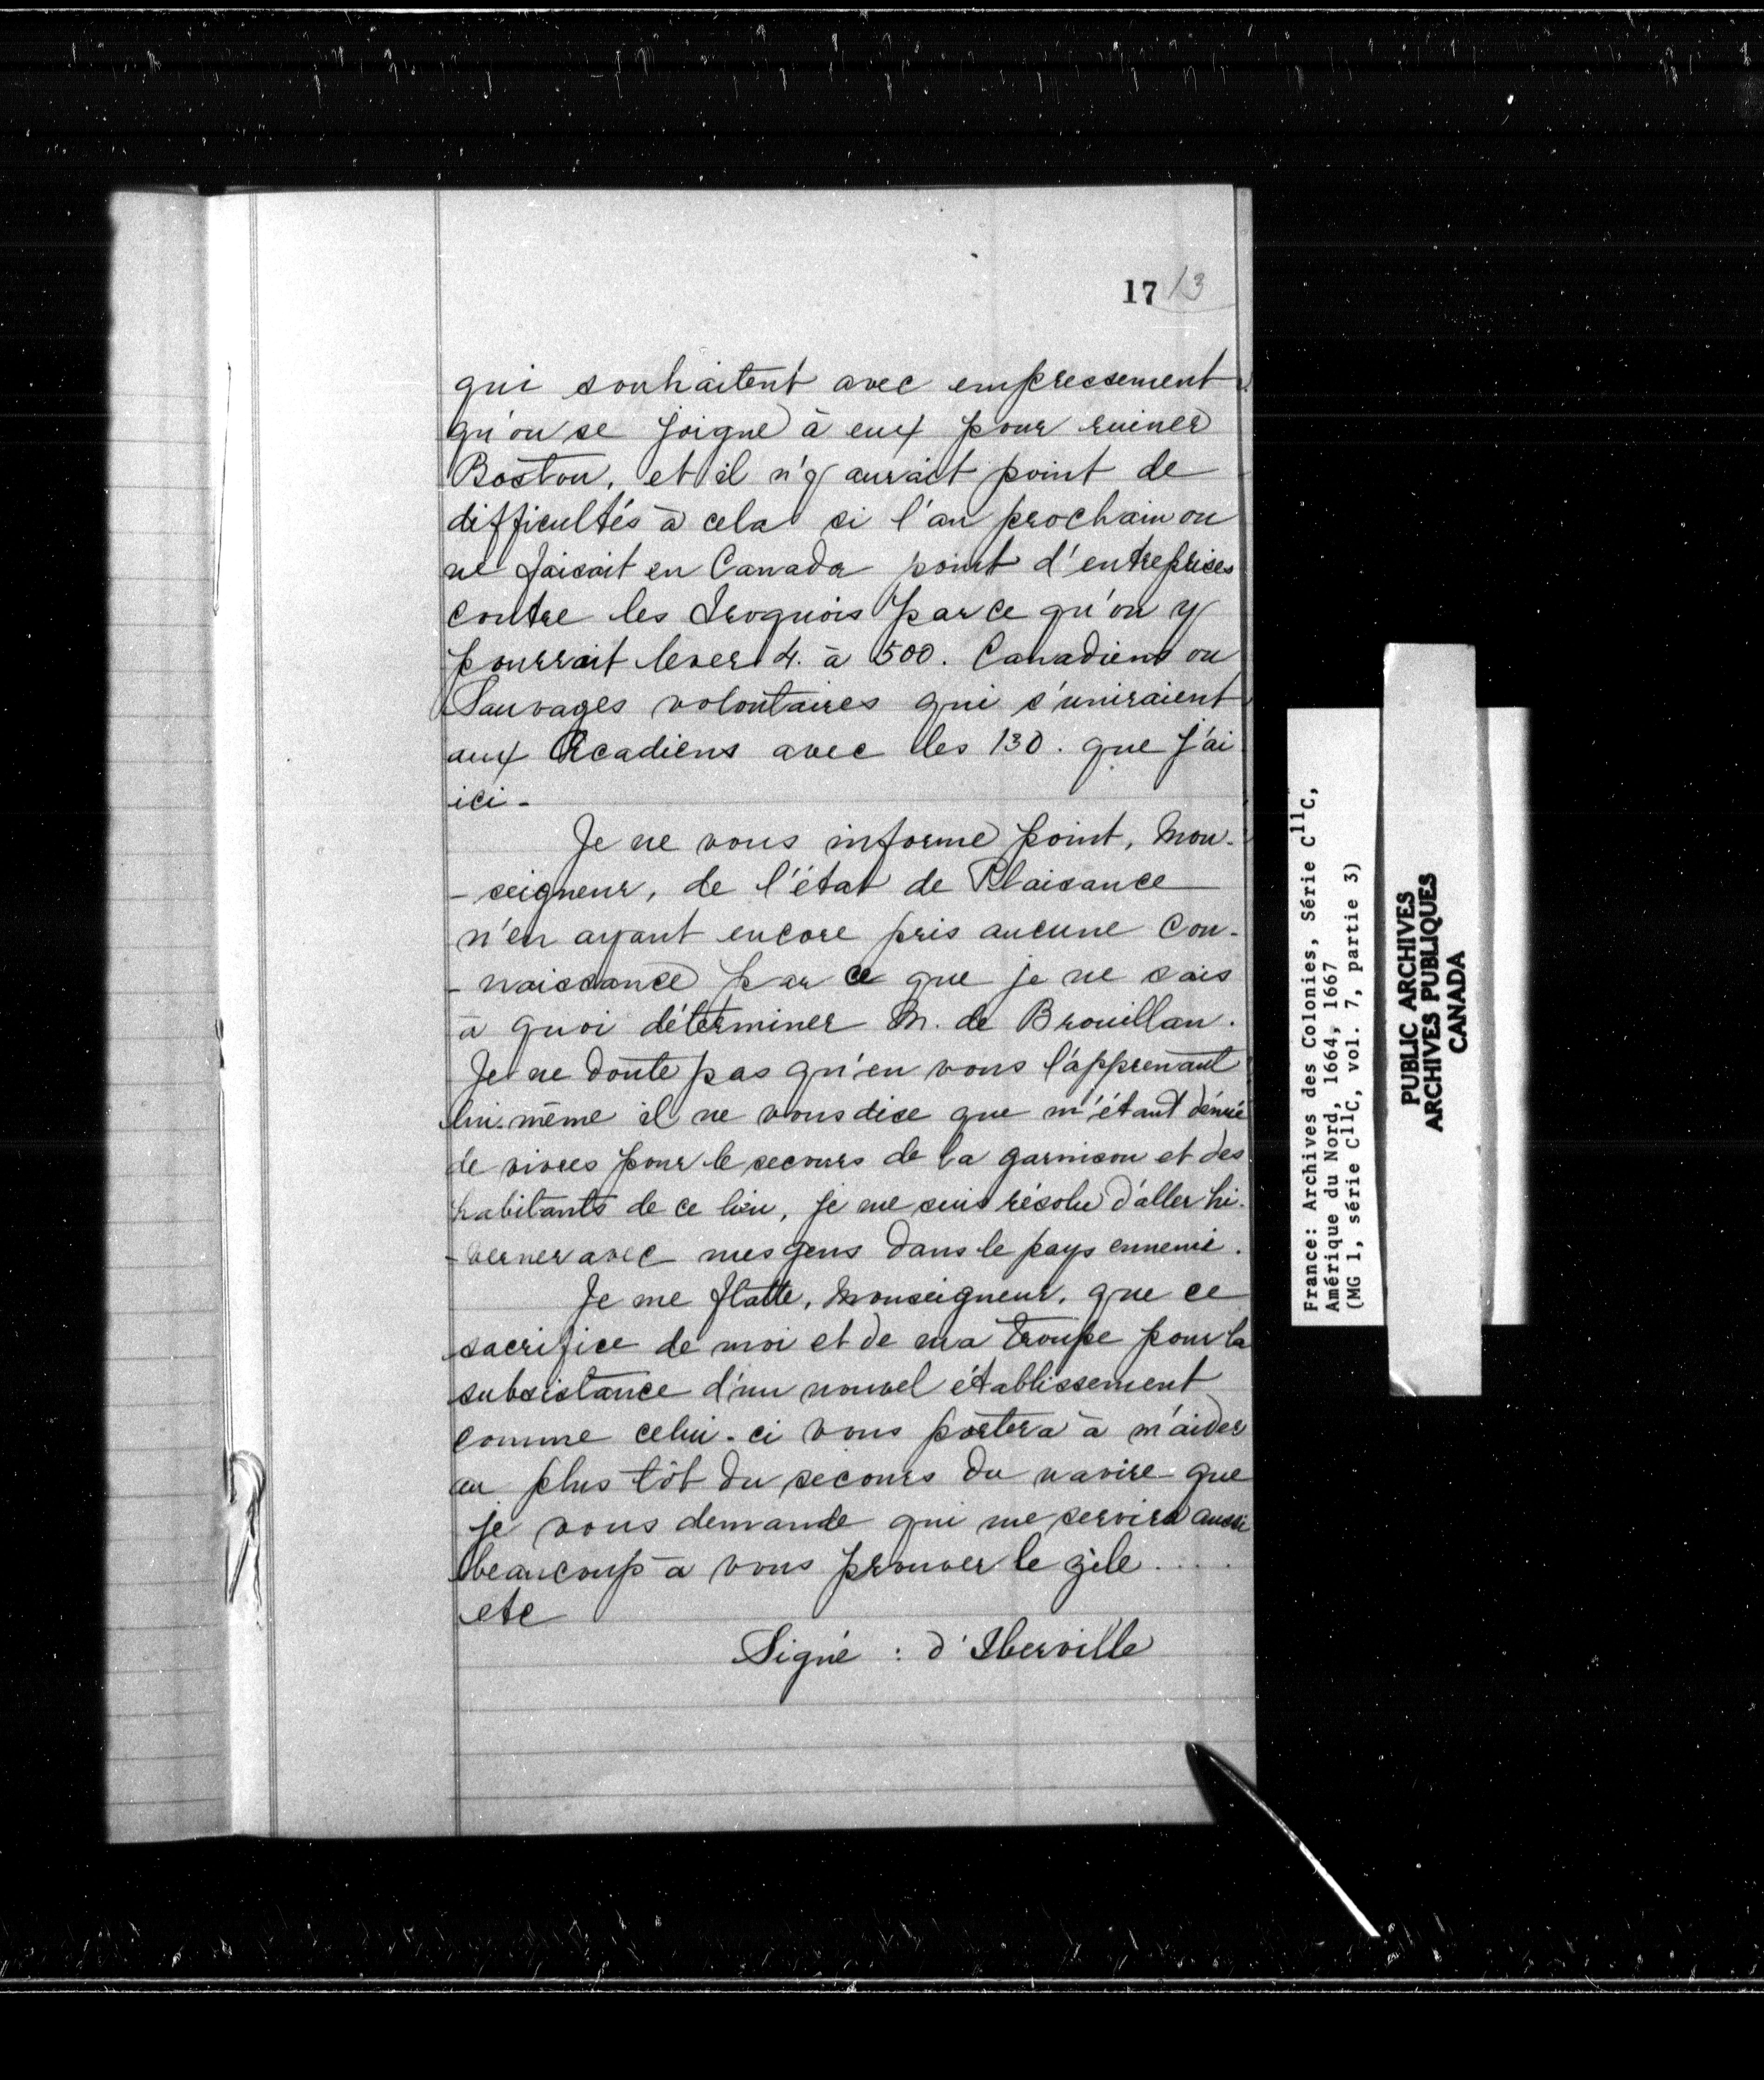 17 13
qui souhaitent avec empressement
qu'on se joigne à eux pour ruiner
Boston, et il n'y aurait point de
difficultés à cela si l'an prochain on
ne faisait en Canada point d'entreprises
contre les Iroquois parce qu'on y
pourrait lever 4. à 500. Canadiens ou
Sauvages volontaires qui s'uniraient
aux Acadiens avec les 130. que j'ai
ici -
Je ne vous informe point, Mon-
- seigneur, de l'état de Plaisance
n'en ayant encore pris aucune con-
- naissance par ce que je ne sais
à quoi déterminer M. de Brouillan.
Je ne doute pas qu'en vous l'apprenant
lui-même il ne vous dise que m'étant dénué
de vivres pour le secours de la garnison et des
habitants de ce lieu, je me suis résolu d'aller hi-
- verner avec mes gens dans le pays ennemi.
Je me flatte, Monseigneur, que ce
sacrifice de moi et de ma troupe pour la
subsistance d'un nouvel établissement
comme celui-ci vous portera à m'aider
au plus tôt du secours du navire que
je vous demande qui me servira aussi
beaucoup à vous prouver le zèle ....
etc
Signé : d'Iberville
France: Archives des Colonies, Série C11C,
Amérique du Nord, 1664, 1667
(MG 1, série C11C, vol. 7, partie 3)
PUBLIC ARCHIVES
ARCHIVES PUBLIQUES
CANADA